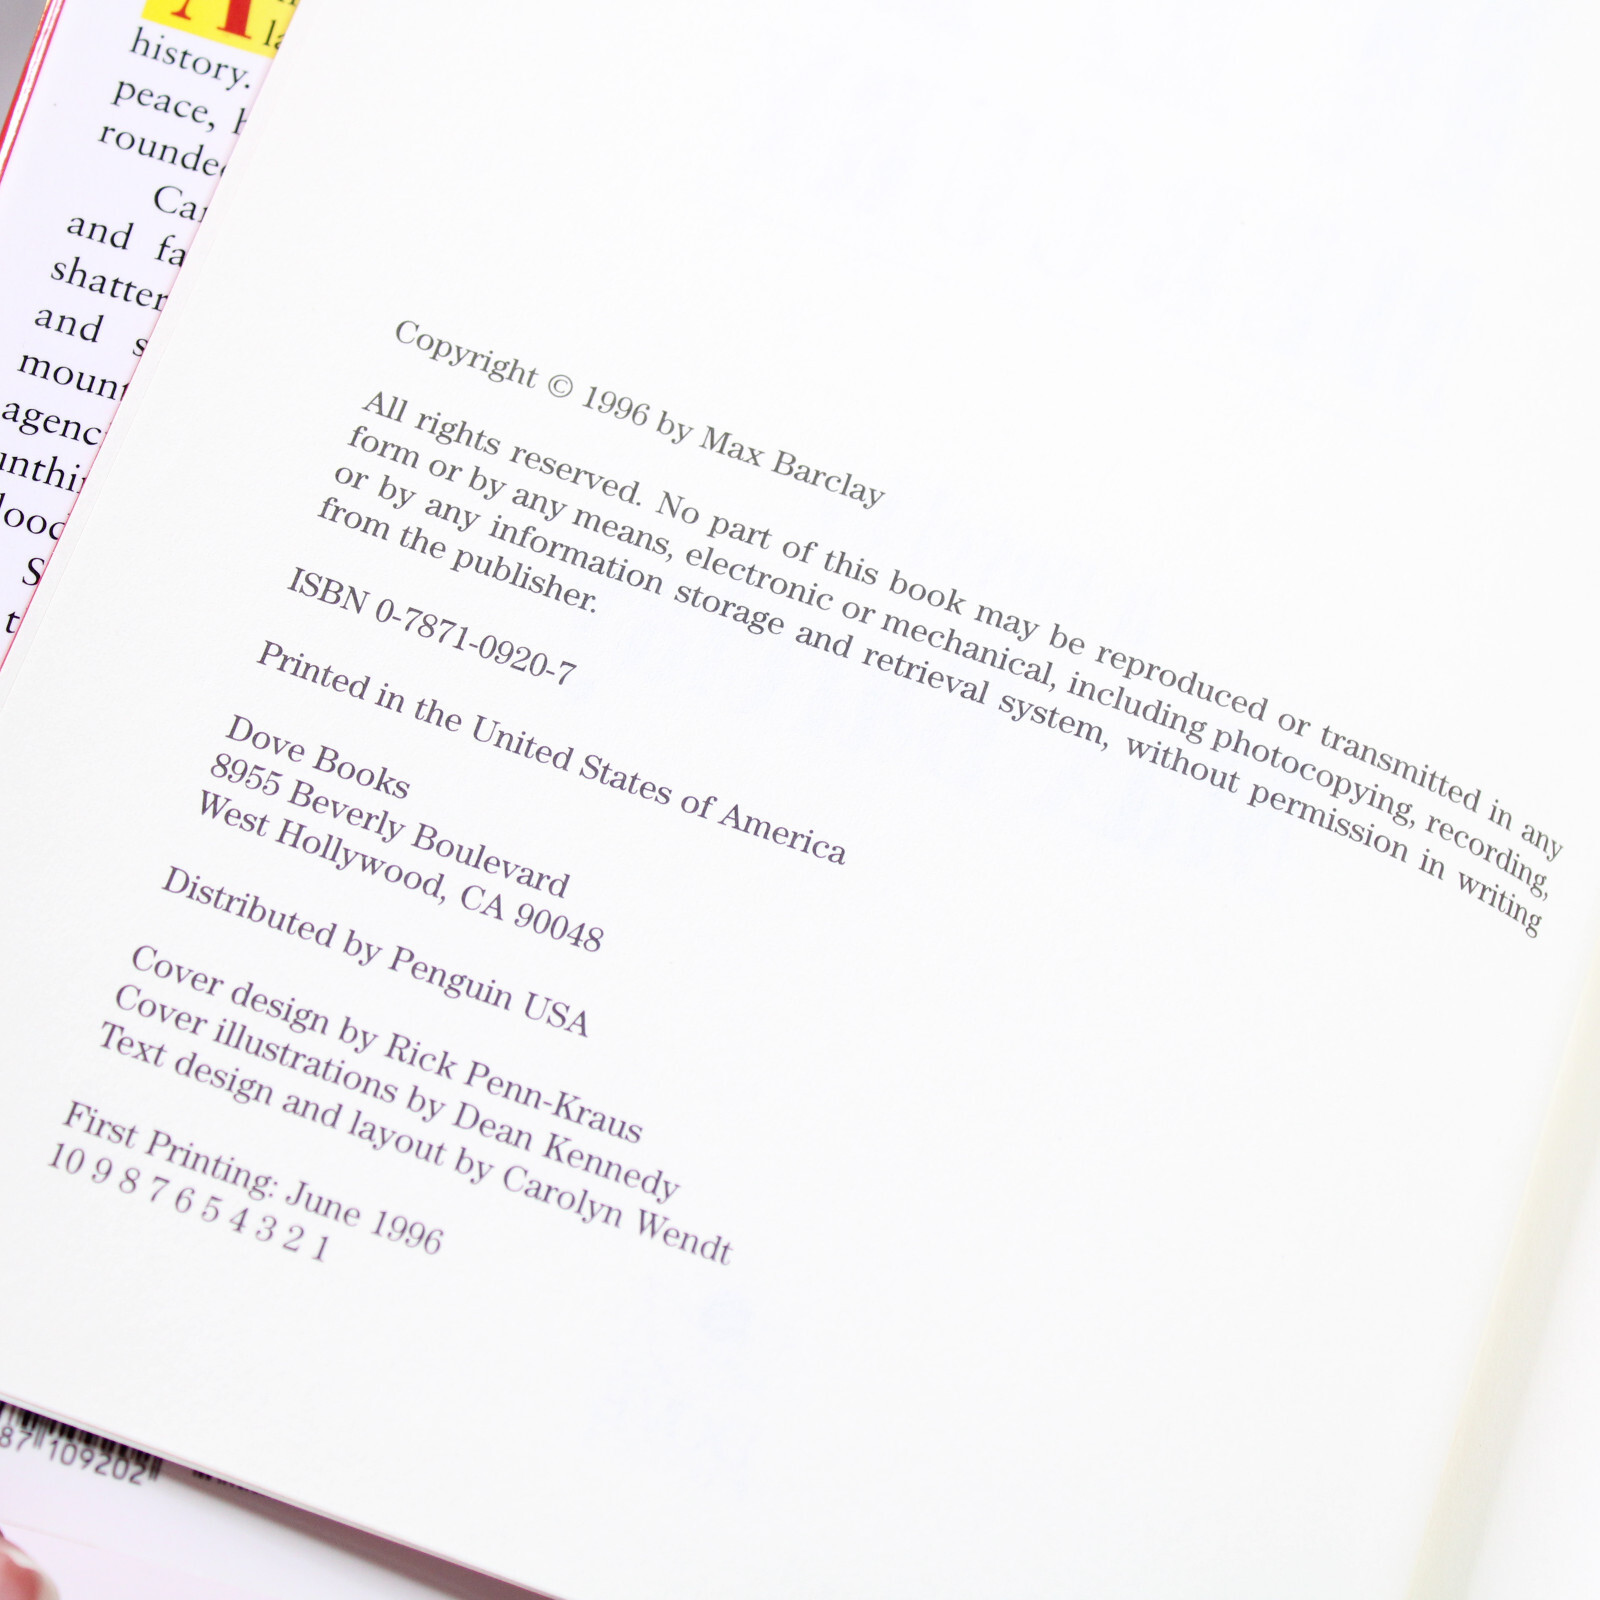 history.
peace,
and
and
Copyright © 1996 by Max Barclay
All rights reserved. No part of this book may be reproduced or transmitted in any
form or by any means, electronic or mechanical, including photocopying, recording,
or by any information storage and retrieval system, without permission in writing
from the publisher.
ISBN 0-7871-0920-7
Printed in the United States of America
Dove Books
8955 Beverly Boulevard
West Hollywood, CA 90048
Distributed by Penguin USA
Cover design by Rick Penn-Kraus
Cover illustrations by Dean Kennedy
Text design and layout by Carolyn Wendt
First Printing: June 1996
10 9 8 7 6 5 4 3 2 1
87 109202